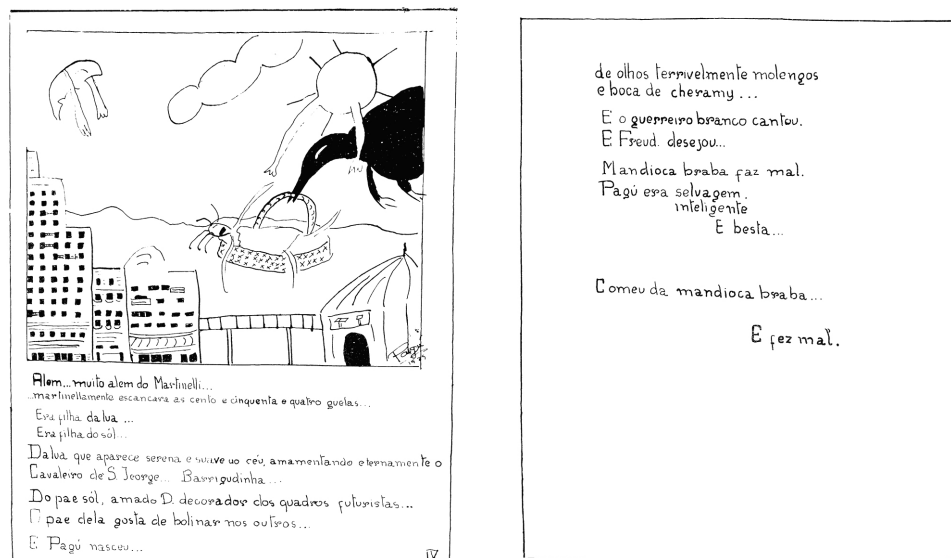 Pagu
Alem... muito alem do Martinelli...
...martinellamente escancara as cento e cinquenta e quatro guelas...
Era filha da lua ...
Era filha do sól...
Da lua que aparece serena e suave no céu, amamentando eternamente o
Cavaleiro de S. Jeorge... Barrigudinha...
Do pae sól, amado D. decorador dos quadros futuristas...
O pae dela gosta de bolinar nos outros...
E Pagú nasceu...
IV
de olhos terrivelmente molengos
e boca de cheramy ...
E o guerreiro branco cantou.
E Freud. desejou...
Mandioca braba faz mal.
Pagú era selvagem.
inteligente
E besta...
Comeu da mandioca braba...
E fez mal.